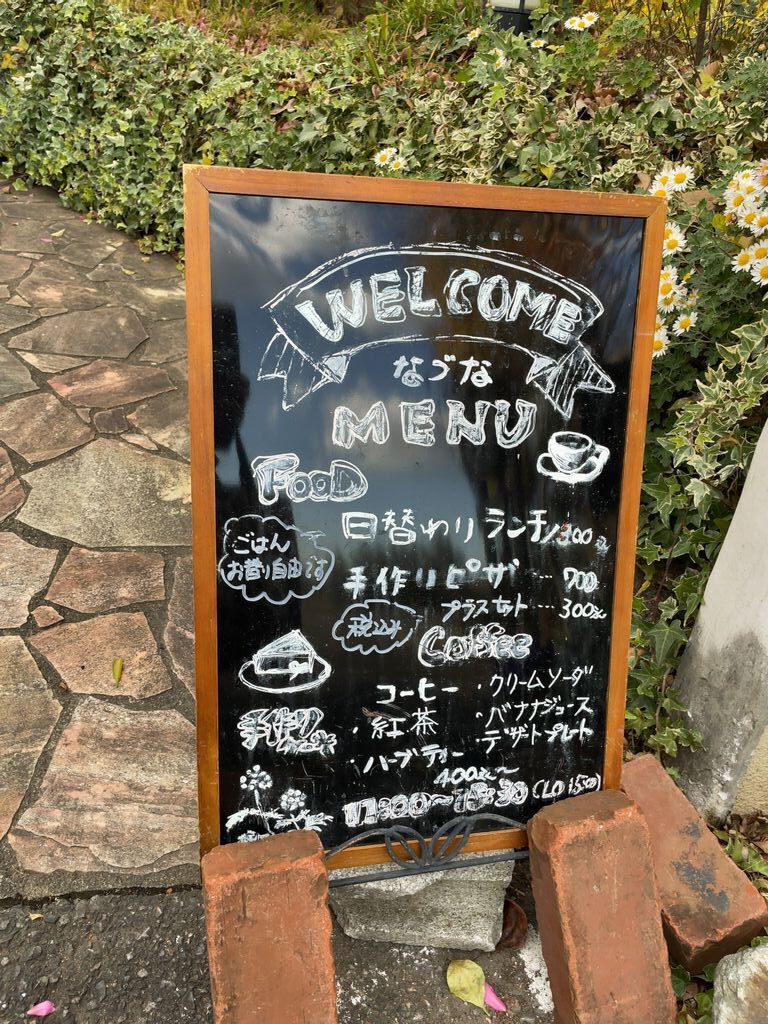 WELCOME
なづな
MENU
FOOD
日替わりランチ
ごはん
お替り自由です
手作りピザ … 700
プラスセット … 300
税込み
Coffee
コーヒー
・紅茶
・ハーブティー
・クリームソーダ
・バナナジュース
デザートプレート
手作り
400
～15:30 (LO 15:00)